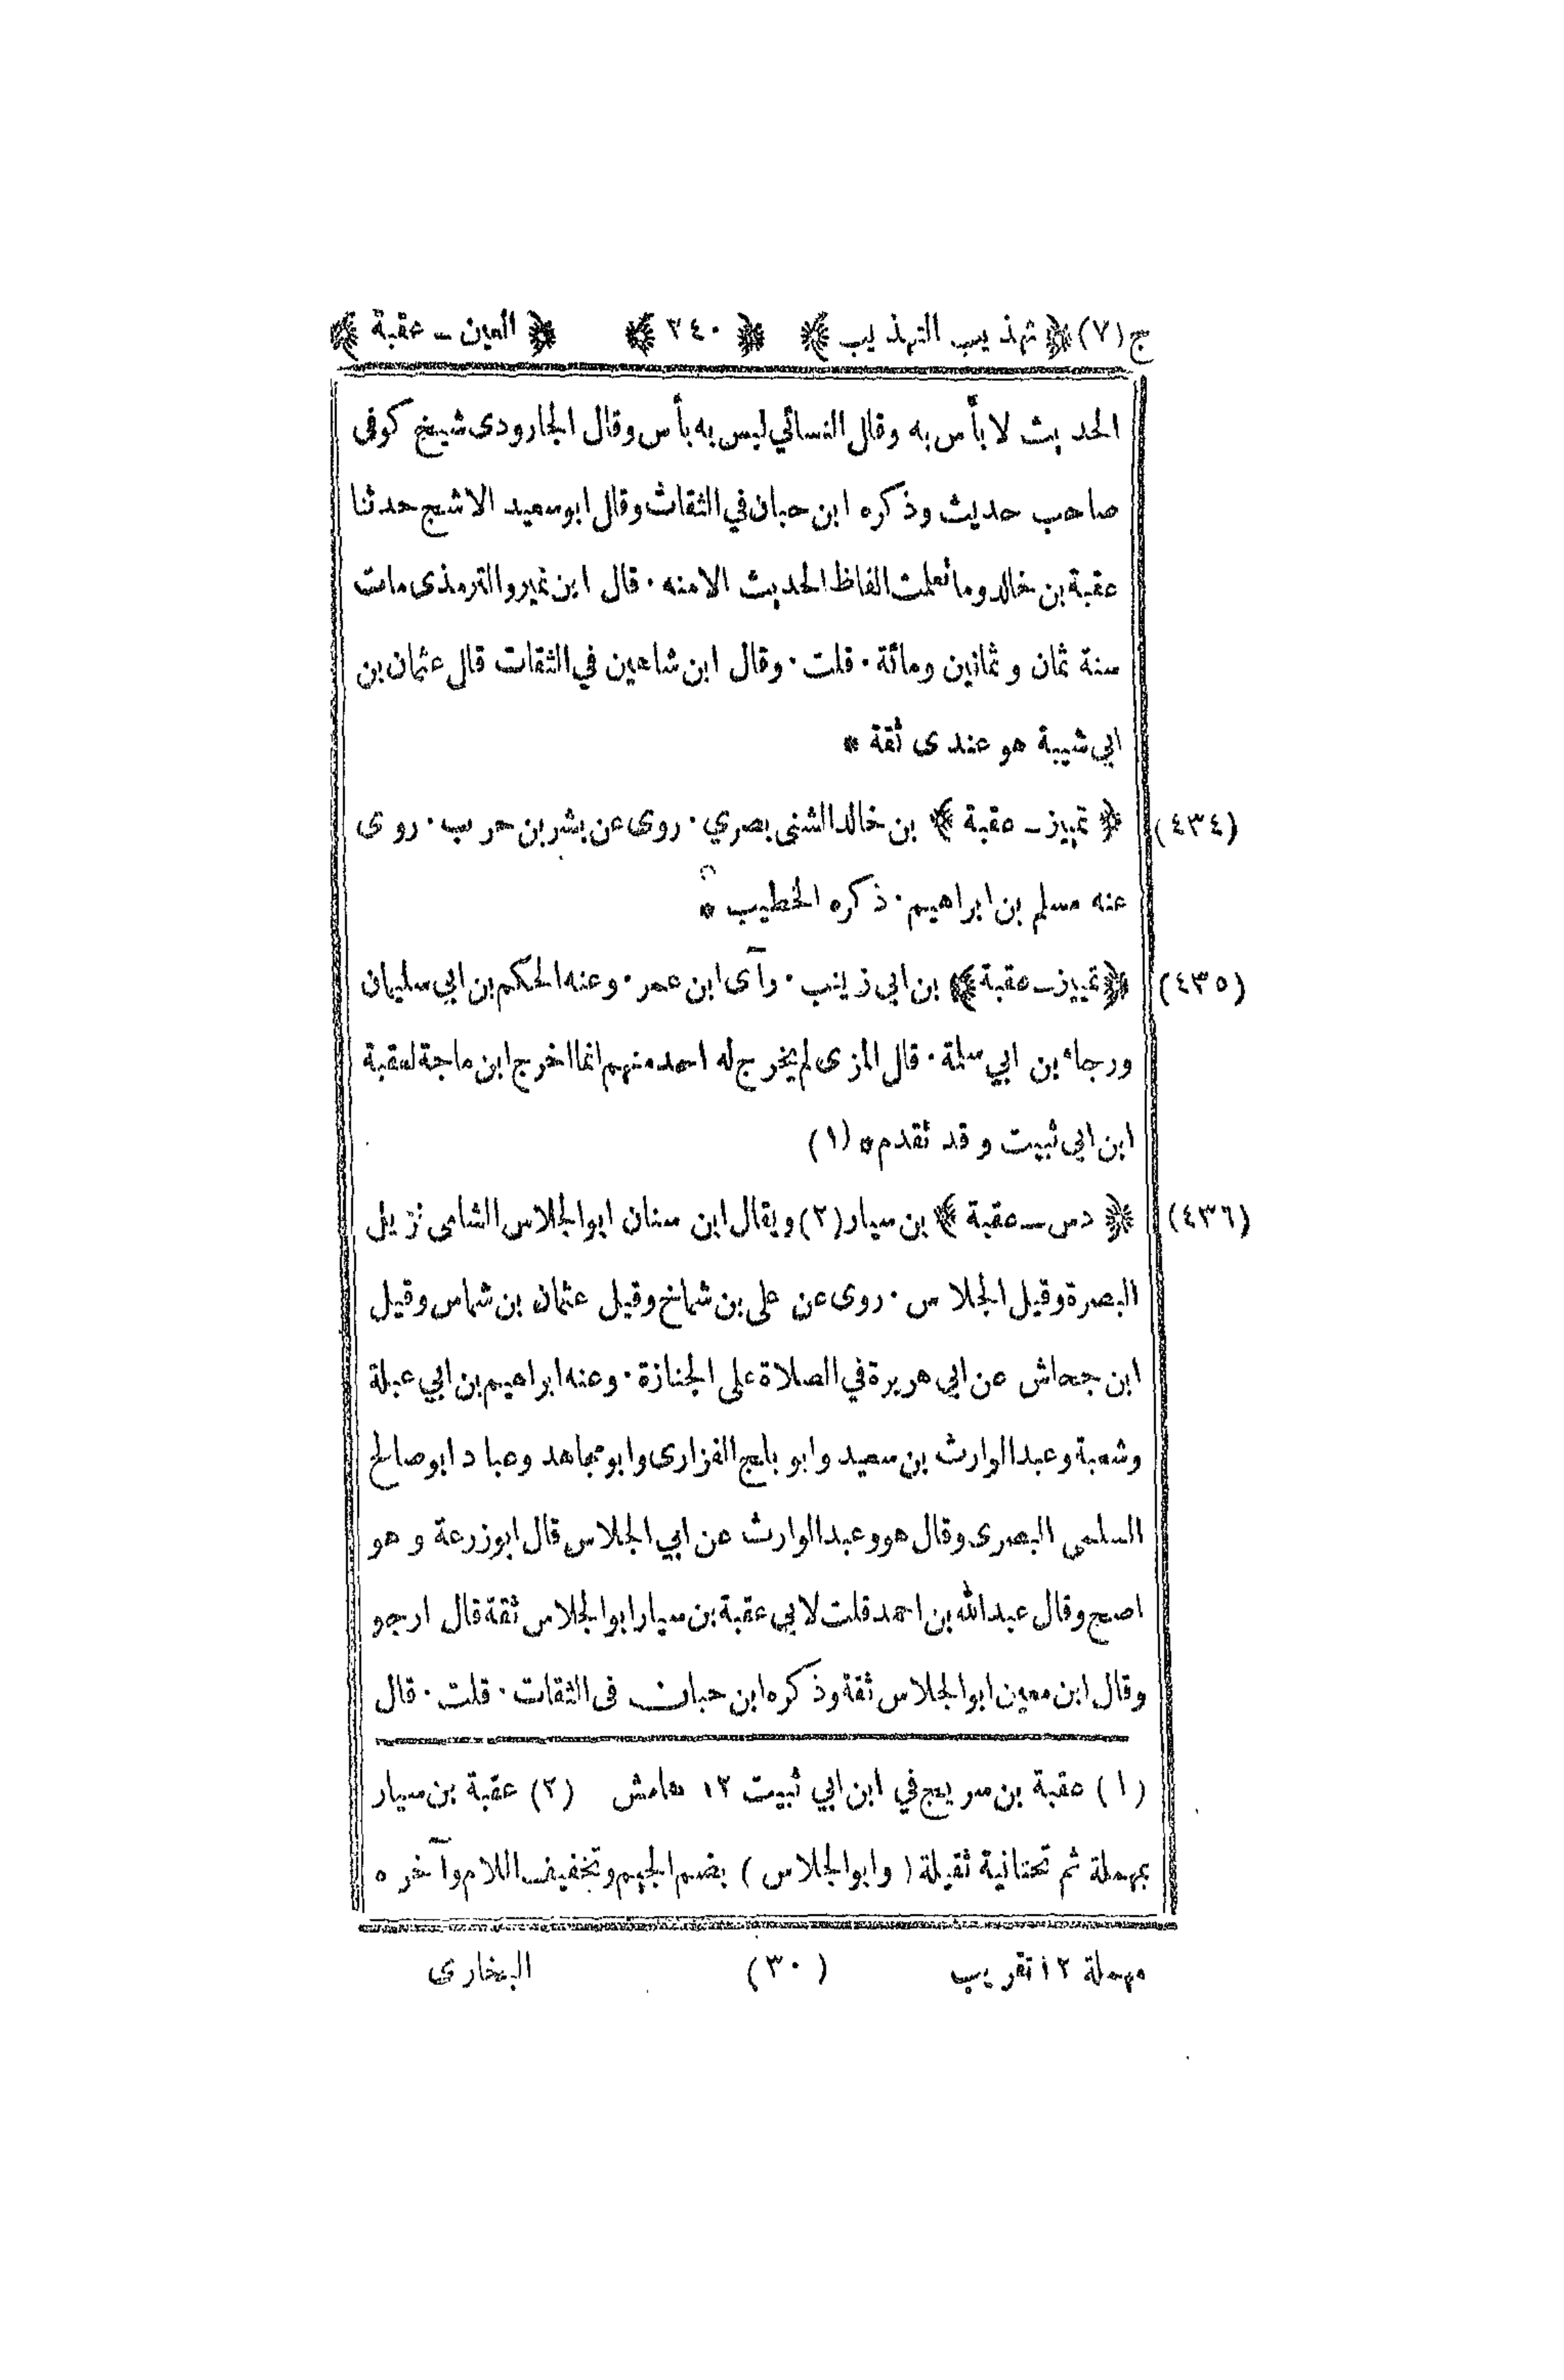 ج (٧) ﴿ تهذيب التهذيب ﴾ ﴿ ٢٤٠ ﴾ ﴿ العين - عقبة ﴾
الحديث لا بأس به وقال النسائي ليس به بأس وقال الجارودى شيخ كوفى
صاحب حديث وذكره ابن حبان في الثقات وقال ابو سعيد الاشج حدثنا
عقبة بن خالد وما تعلمت الفاظ الحديث الا منه · قال ابن نمير والترمذى مات
سنة ثمان وثمانين ومائة · قلت · وقال ابن شاهين في الثقات قال عثمان بن
ابي شيبة هو عندى ثقة *
(٤٣٤) ﴿ تمييز - عقبة ﴾ بن خالد الشنى بصري · روى عن بشر بن حرب · روى
عنه مسلم بن ابراهيم · ذكره الخطيب *
(٤٣٥) ﴿ تمييز - عقبة ﴾ بن ابي زينب · رآى ابن عمر · وعنه الحكم بن ابي سليمان
ورجاء بن ابي سلمة · قال المزى لم يخرج له احد منهم انما اخرج ابن ماجة لعقبة
ابن ابي ثبيت وقد تقدم * (١)
(٤٣٦) ﴿ دس - عقبة ﴾ بن سيار (٢) ويقال ابن سنان ابو الجلاس الشامى نزيل
البصرة وقيل الجلاس · روى عن على بن شماخ وقيل عثمان بن شماس وقيل
ابن جحاش عن ابي هريرة في الصلاة على الجنازة · وعنه ابراهيم بن ابي عبلة
وشعبة وعبد الوارث بن سعيد وابو بلج الفزارى وابو مجاهد وعباد ابو صالح
السلمى البصرى وقال هو وعبد الوارث عن ابي الجلاس قال ابو زرعة وهو
اصح وقال عبد الله بن احمد قلت لابي عقبة بن سيار ابو الجلاس ثقة قال ارجو
وقال ابن معين ابو الجلاس ثقة وذكره ابن حبان فى الثقات · قلت · قال
(١) عقبة بن سريج في ابن ابي ثبيت ١٢ هامش (٢) عقبة بن سيار
بمهملة ثم تحتانية ثقيلة (وابو الجلاس) بضم الجيم وتخفيف اللام وآخره
مهملة ١٢ تقريب (٣٠) البخارى